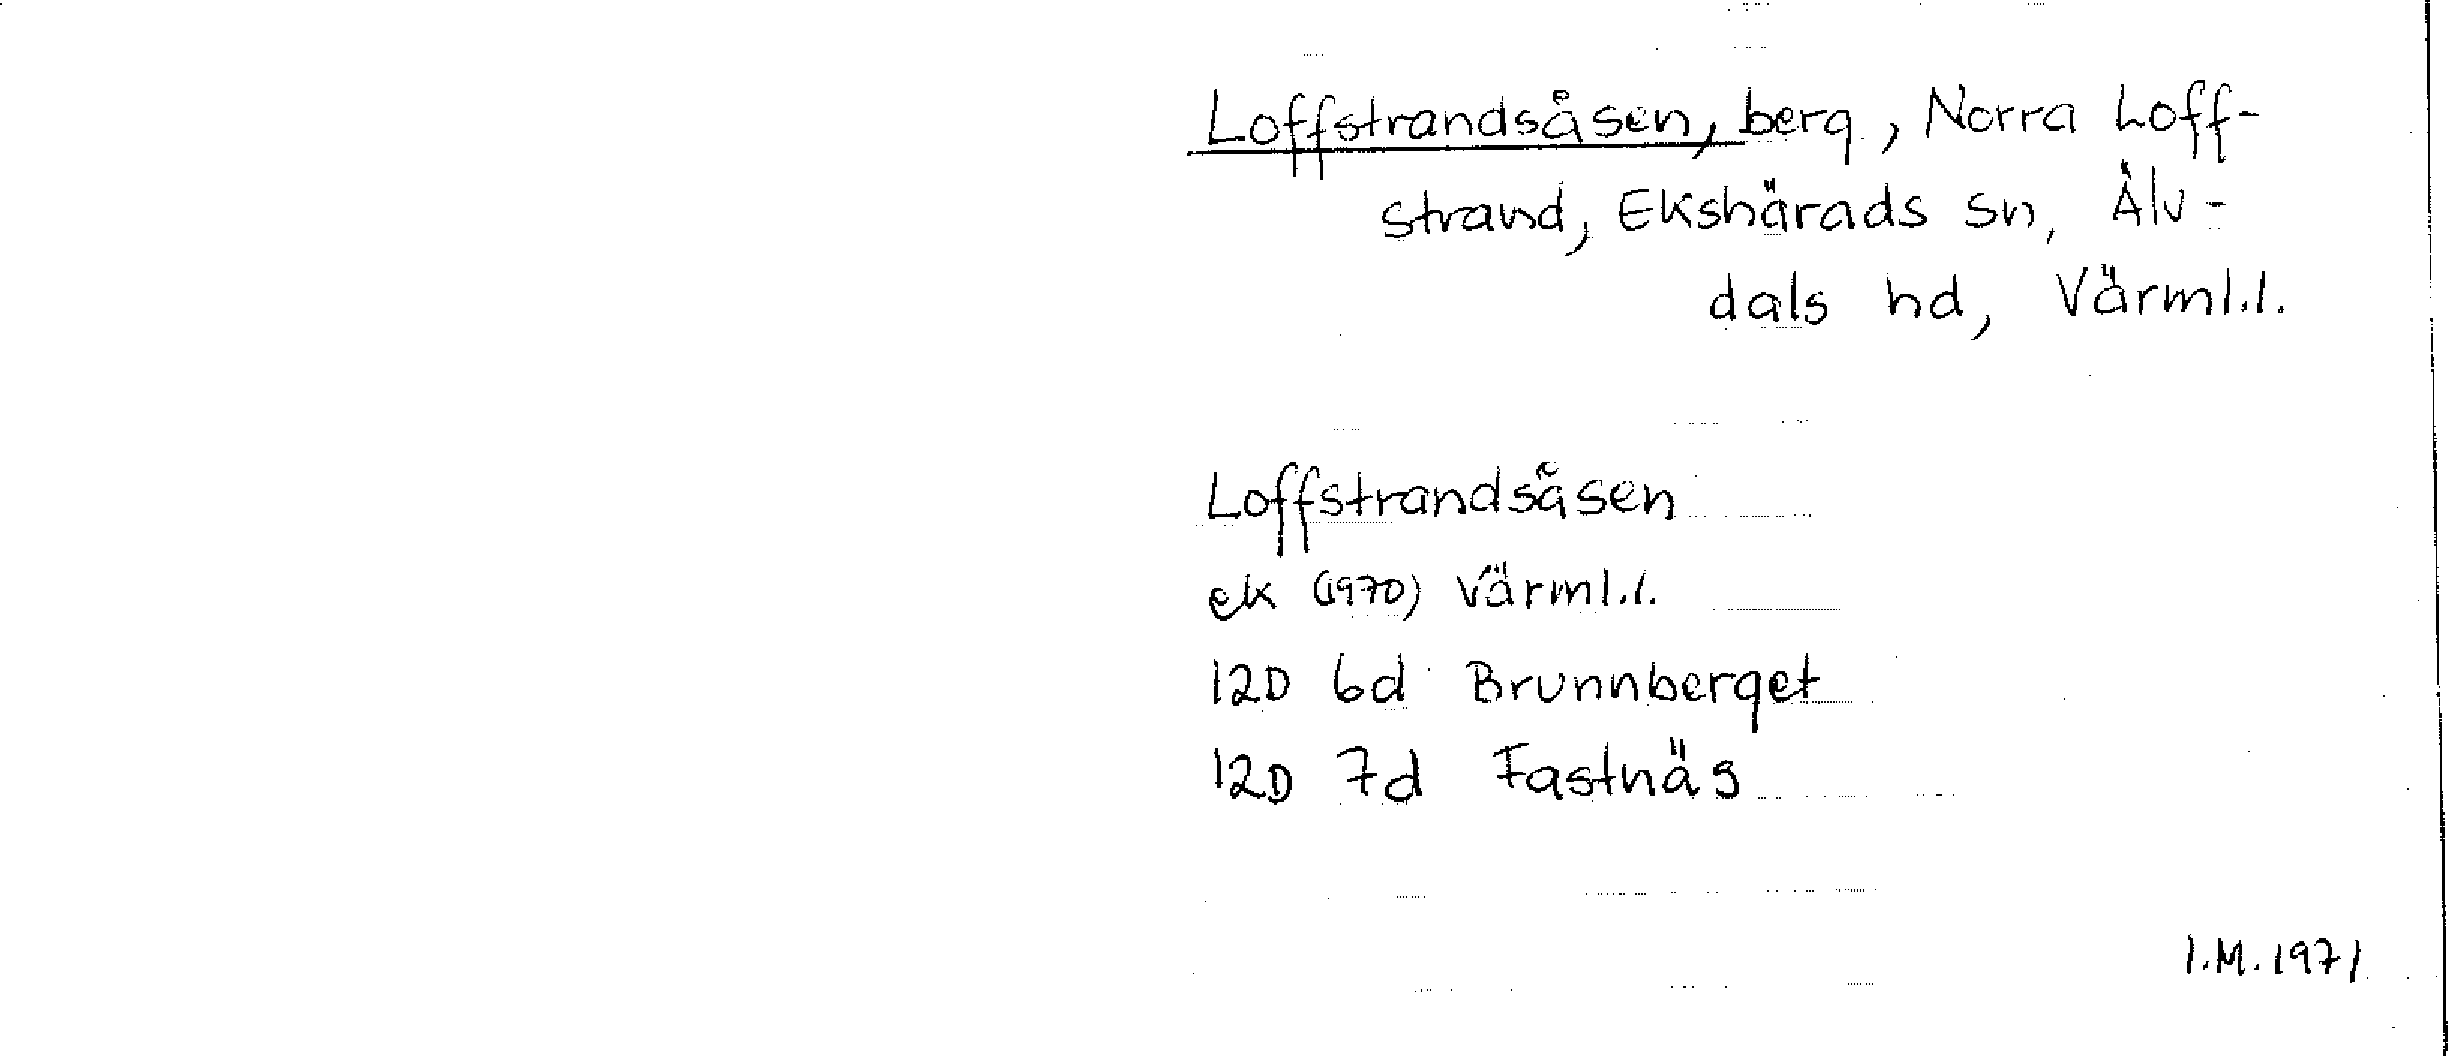 Loffstrandsåsen, berg, Norra Loff-
strand, Ekshärads sn, Älv-
dals hd, Värml.l.
Loffstrandsåsen
ek (1970) Värml.l.
12D 6d Brunnberget
12D 7d Fastnäs
I.M. 1971